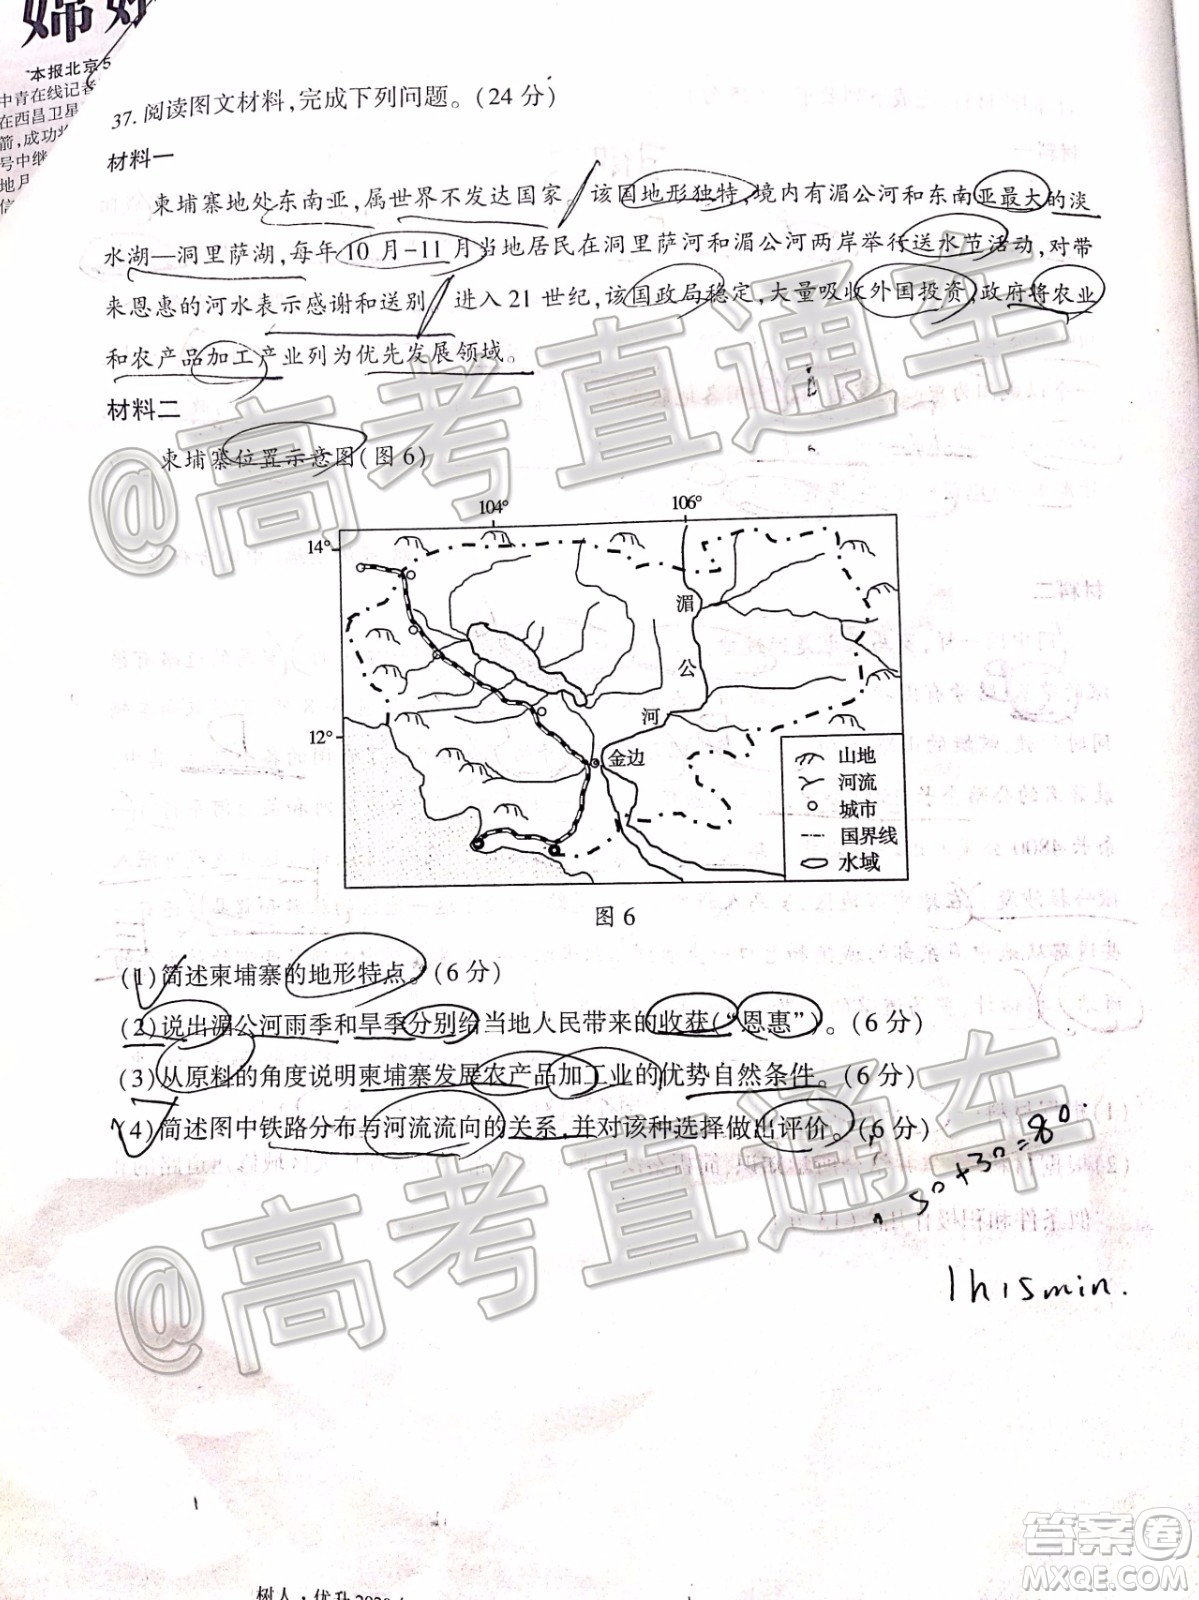 本报北京5
中青在线记者
在西昌卫星
箭,成功将
号中继
地月
信
37. 阅读图文材料,完成下列问题。(24 分)
材料一
柬埔寨地处东南亚,属世界不发达国家。该国地形独特,境内有湄公河和东南亚最大的淡
水湖—洞里萨湖,每年 10 月-11 月当地居民在洞里萨河和湄公河两岸举行送水节活动,对带
来恩惠的河水表示感谢和送别。进入 21 世纪,该国政局稳定,大量吸收外国投资,政府将农业
和农产品加工产业列为优先发展领域。
材料二
柬埔寨位置示意图(图 6)
104° 106°
14°
湄
公
河
12°
金边
山地
河流
城市
国界线
水域
图 6
(1)简述柬埔寨的地形特点。(6 分)
(2)说出湄公河雨季和旱季分别给当地人民带来的收获(“恩惠”)。(6 分)
(3)从原料的角度说明柬埔寨发展农产品加工业的优势自然条件。(6 分)
(4)简述图中铁路分布与河流流向的关系,并对该种选择做出评价。(6 分)
50+30=80
1h15min.
@高考直通车
@高考直通车
答案圈
MXQE.COM
树人·优升2020